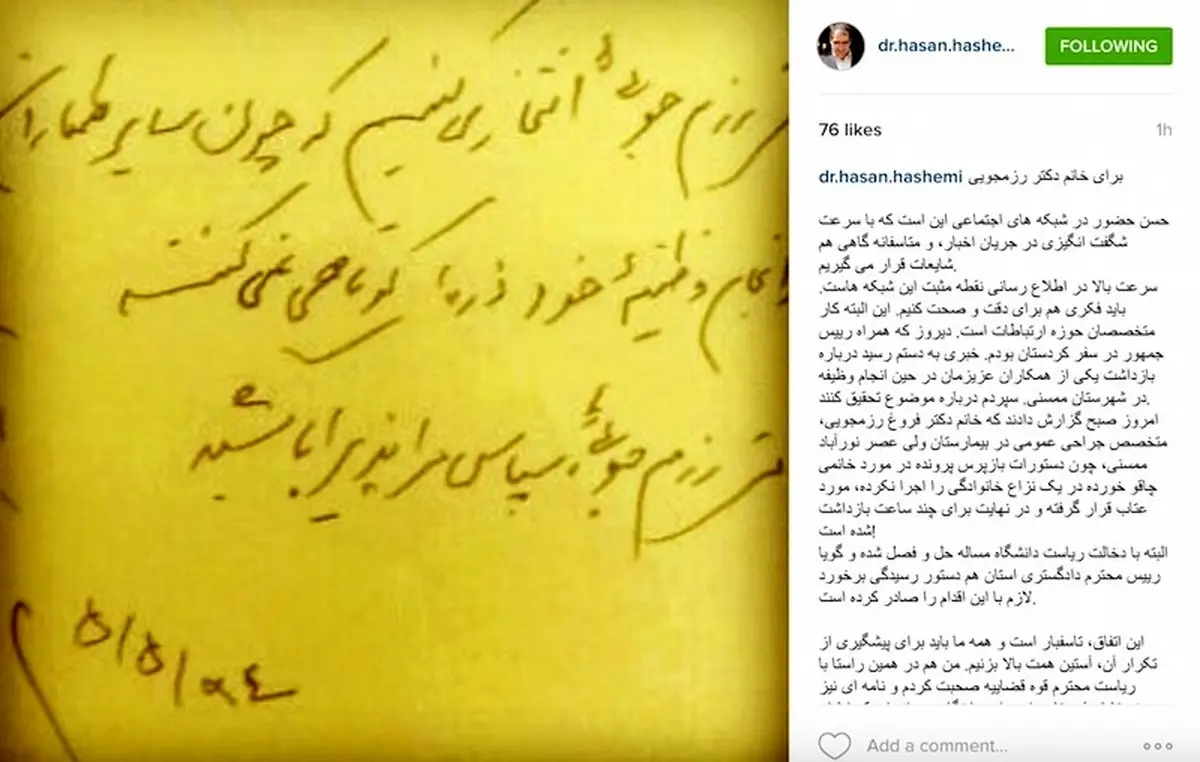 رزم جوئی افتخار می کنیم که چون سایر همکاران
انجام وظیفهٔ خود ذره ای کوتاهی نمی کنند
رزم جوئی، سپاس مرا پذیرا باشید
۵/۵/۹٤
dr.hasan.hashe...
FOLLOWING
76 likes
1h
dr.hasan.hashemi برای خانم دکتر رزمجویی
حسن حضور در شبکه های اجتماعی این است که با سرعت
شگفت انگیزی در جریان اخبار، و متاسفانه گاهی هم
شایعات قرار می گیریم.
سرعت بالا در اطلاع رسانی نقطه مثبت این شبکه هاست.
باید فکری هم برای دقت و صحت کنیم. این البته کار
متخصصان حوزه ارتباطات است. دیروز که همراه رییس
جمهور در سفر کردستان بودم. خبری به دستم رسید درباره
بازداشت یکی از همکاران عزیزمان در حین انجام وظیفه
در شهرستان ممسنی. سپردم درباره موضوع تحقیق کنند.
امروز صبح گزارش دادند که خانم دکتر فروغ رزمجویی،
متخصص جراحی عمومی در بیمارستان ولی عصر نورآباد
ممسنی، چون دستورات بازپرس پرونده در مورد خانمی
چاقو خورده در یک نزاع خانوادگی را اجرا نکرده، مورد
عتاب قرار گرفته و در نهایت برای چند ساعت بازداشت
شده است!
البته با دخالت ریاست دانشگاه مساله حل و فصل شده و گویا
رییس محترم دادگستری استان هم دستور رسیدگی برخورد
لازم با این اقدام را صادر کرده است.
این اتفاق، تاسفبار است و همه ما باید برای پیشگیری از
تکرار آن، آستین همت بالا بزنیم. من هم در همین راستا با
ریاست محترم قوه قضاییه صحبت کردم و نامه ای نیز
Add a comment...